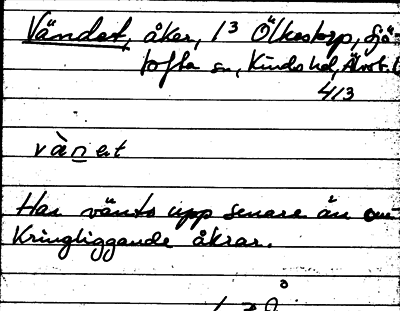 Vändet, åker, 1³ Ölkestorp, Sjö-
tofta sn, Kinds hd, Älvsb. l
4/3
vànet
Har vänts upp senare än om-
kringliggande åkrar.